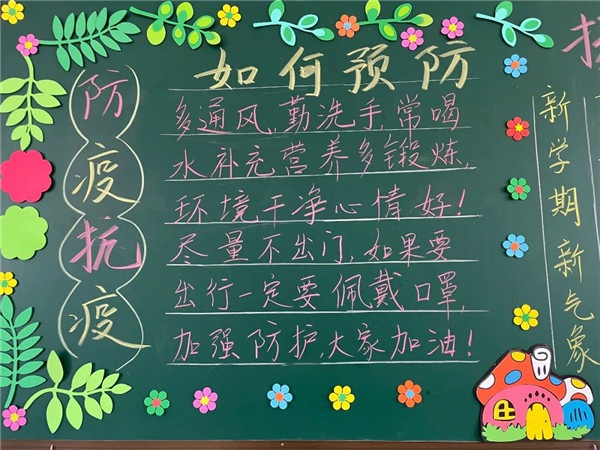 防疫抗疫
如何预防
多通风,勤洗手,常喝
水补充营养多锻炼,
环境干净心情好!
尽量不出门,如果要
出行一定要佩戴口罩,
加强防护,大家加油!
新学期新气象